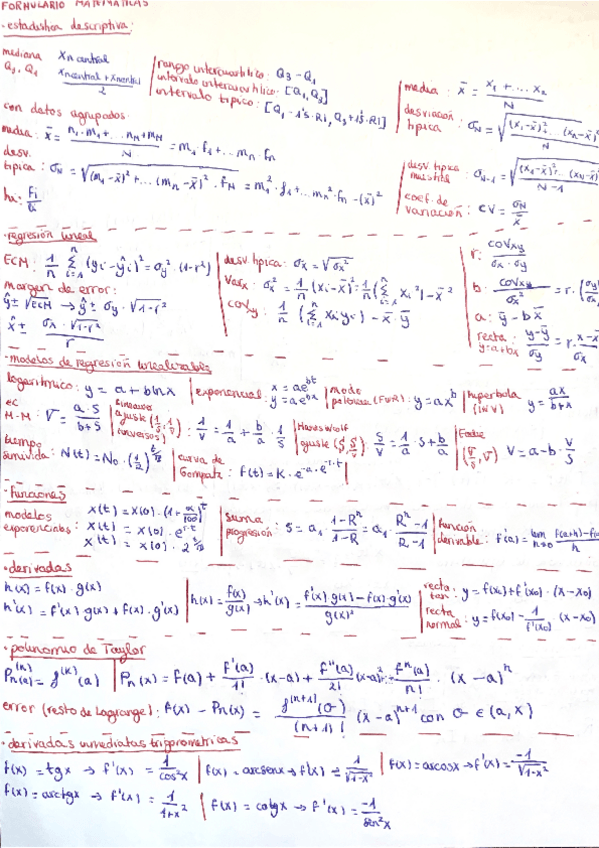 FORMULARIO MATEMÁTICAS
· estadística descriptiva:
mediana x_n central
Q₃, Q₁ (x_n central + x_n central)/2
rango intercuartílico: Q₃ - Q₁
intervalo intercuartílico: [Q₁, Q₃]
intervalo típico: [Q₁ - 1's · RI, Q₃ + 1's · RI]
media: x̄ = (x₁ + ... xₙ)/N
desviación típica: σ_N = √((x₁-x̄)² + ... (xₙ-x̄)²/N)
con datos agrupados:
media: x̄ = (n₁·m₁ + ... n_M + m_M)/N = m₁·f₁ + ... mₙ·fₙ
desv. típica: σ_N = √((m₁-x̄)² + ... (mₙ-x̄)² · f_M) = m₁²·f₁ + ... mₙ²·fₙ - (x̄)²
desv. típica muestral: σ_{N-1} = √((x₁-x̄)² + ... (x_N-x̄)²/N-1)
coef. de variación: CV = σ_N/x̄
· regresión lineal
ECM: 1/n Σ_{i=1}^{n} (yᵢ - ŷᵢ)² = σ_y² · (1-r²)
margen de error:
ŷ ± √ECM → ŷ ± σ_y · √1-r²
x̂ ± (σ_x · √1-r²)/r
desv. típica: σ_x = √σ_x²
Var x: σ_x² = 1/n (xᵢ - x̄)² = 1/n (Σ_{i=1}^{n} xᵢ²) - x̄²
cov_xy: 1/n (Σ_{i=1}^{n} xᵢyᵢ) - x̄ · ȳ
r: cov_xy/(σ_x · σ_y)
b: cov_xy/σ_x² = r·(σ_y
a: ȳ - b x̄
recta: (y-ȳ)/σ_y = r·(x-x̄)/σ_x
y = a+bx
· modelos de regresión linealizables
logarítmico: y = a + b ln x
exponencial: x = ae^{bt}
y = a e^{bx}
mode potencia (FWR): y = ax^b
hipérbola (INV) y = ax/(b+x)
ec M-M: V = (a·S)/(b+S)
ajuste (1/S, 1/V) inversos: 1/V = 1/a + b/a · 1/S
ajuste (S, S/V): S/V = 1/a · S + b/a
Eadie (V/S, V) V = a - b · V/S
tiempo semivida: N(t) = N₀ · (1/2)^{t/τ}
curva de Gompertz: f(t) = K · e^{-a·e^{-r·t}}
· funciones
modelos exponenciales: x(t) = x(0) · (1 + α/100)^t
x(t) = x(0) · e^{r·t}
x(t) = x(0) · 2^{t/τ}
suma progresión: S = a₁ · (1-Rⁿ)/(1-R) = a₁ · (Rⁿ-1)/(R-1)
función derivable: f'(a) = lim_{h→0} (f(a+h) - f(a
· derivadas
h(x) = f(x) · g(x)
h'(x) = f'(x) · g(x) + f(x) · g'(x)
h(x) = f(x)/g(x) → h'(x) = (f'(x)·g(x) - f(x)·g'(x))/g(x)²
recta tan: y = f(x₀) + f'(x₀) · (x-x₀)
recta normal: y = f(x₀) - 1/f'(x₀) · (x-x₀)
· polinomio de Taylor
Pₙ^{(k)}(a) = f^{(k)}(a)
Pₙ(x) = f(a) + f'(a)/1! · (x-a) + f''(a)/2! (x-a)² + fⁿ(a)/n! · (x-a)ⁿ
error (resto de Lagrange): f(x) - Pₙ(x) = f^{(n+1)}(σ)/(n+1)! (x-a)^{n+1} con σ ∈ (a, x)
· derivadas inmediatas trigonométricas
f(x) = tgx → f'(x) = 1/cos²x
f(x) = arcsenx → f'(x) = 1/√1-x²
f(x) = arcosx → f'(x) = -1/√1-x²
f(x) = arctgx → f'(x) = 1/1+x²
f(x) = cotgx → f'(x) = -1/sen²x